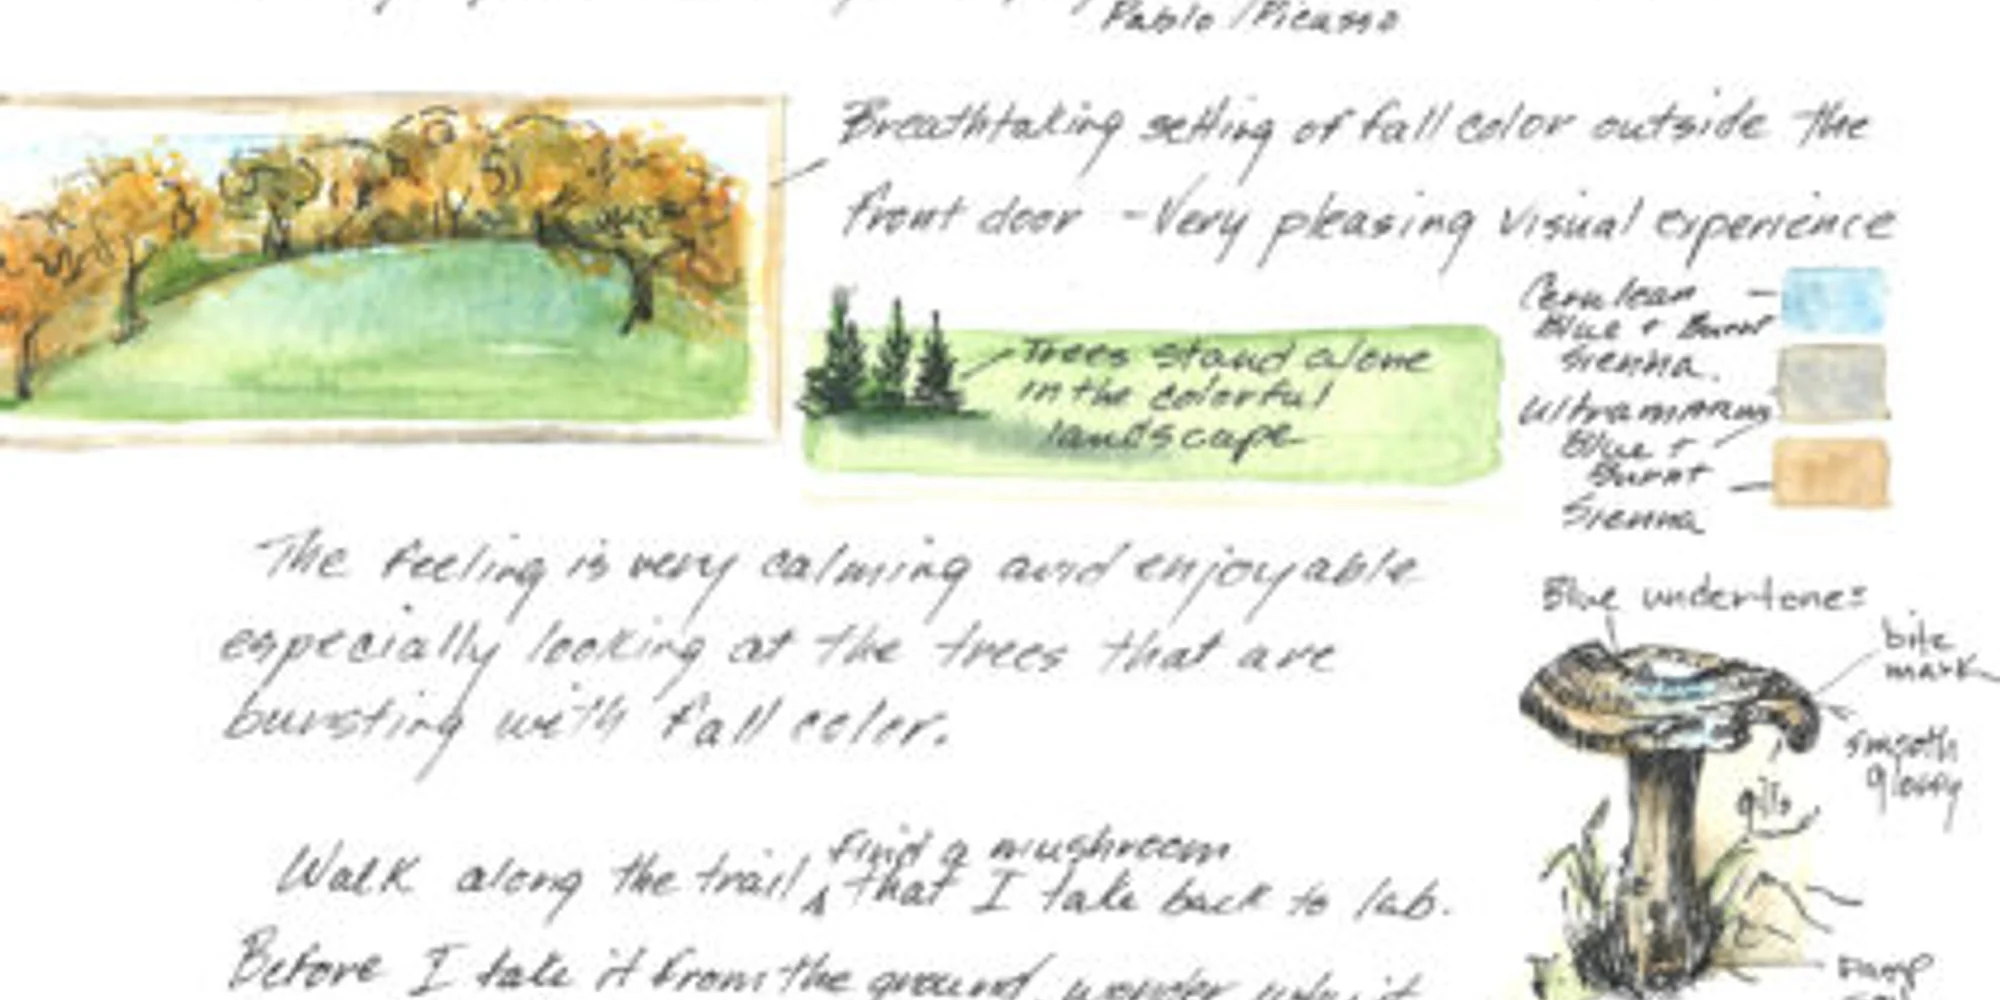 Pablo Picasso
Breathtaking setting of fall color outside the
front door - Very pleasing visual experience
Trees stand alone
in the colorful
landscape
Cerulean
Blue + Burnt
Sienna.
Ultramarine
Blue +
Burnt
Sienna
The feeling is very calming and enjoyable
especially looking at the trees that are
bursting with fall color.
Blue undertones
bite
mark
smooth
glossy
gills
find a mushroom
Walk along the trail, that I take back to lab.
Before I take it from the ground, wonder why it